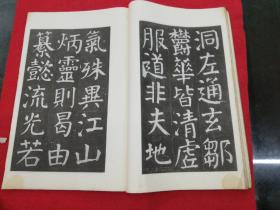 洞左通玄鄒
欝華皆清虛
服道非夫地
氣殊異江山
炳靈則曷由
纂懿流光若